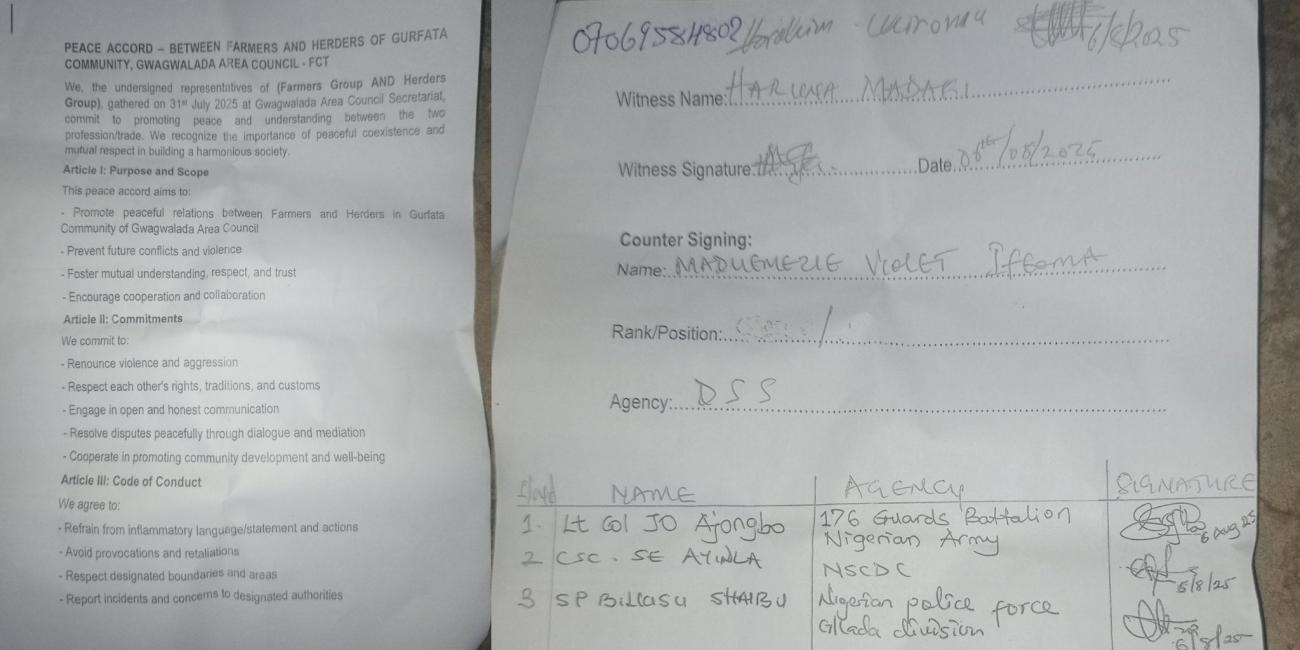 PEACE ACCORD – BETWEEN FARMERS AND HERDERS OF GURFATA
COMMUNITY, GWAGWALADA AREA COUNCIL - FCT
We, the undersigned representatives of (Farmers Group AND Herders
Group), gathered on 31st July 2025 at Gwagwalada Area Council Secretariat,
commit to promoting peace and understanding between the two
profession/trade. We recognize the importance of peaceful coexistence and
mutual respect in building a harmonious society.
Article I: Purpose and Scope
This peace accord aims to:
- Promote peaceful relations between Farmers and Herders in Gurfata
Community of Gwagwalada Area Council
- Prevent future conflicts and violence
- Foster mutual understanding, respect, and trust
- Encourage cooperation and collaboration
Article II: Commitments
We commit to:
- Renounce violence and aggression
- Respect each other's rights, traditions, and customs
- Engage in open and honest communication
- Resolve disputes peacefully through dialogue and mediation
- Cooperate in promoting community development and well-being
Article III: Code of Conduct
We agree to:
- Refrain from inflammatory language/statement and actions
- Avoid provocations and retaliations
- Respect designated boundaries and areas
- Report incidents and concerns to designated authorities
07069584802 Ibrahim 6/8/2025
Witness Name: HARUNA MADAKI
Witness Signature: Date 06th/08/2025
Counter Signing:
Name: MADUEMEZIE VIOLET IFEOMA
Rank/Position:
Agency: DSS
NAME AGENCY SIGNATURE
1. Lt Col JO Ajongbo 176 Guards Battalion
Nigerian Army 6 Aug 25
2 CSC. SE AYINLA NSCDC 6/8/25
3 SP BILLASU SHAIBU Nigerian police force
G/lada division 6/8/25